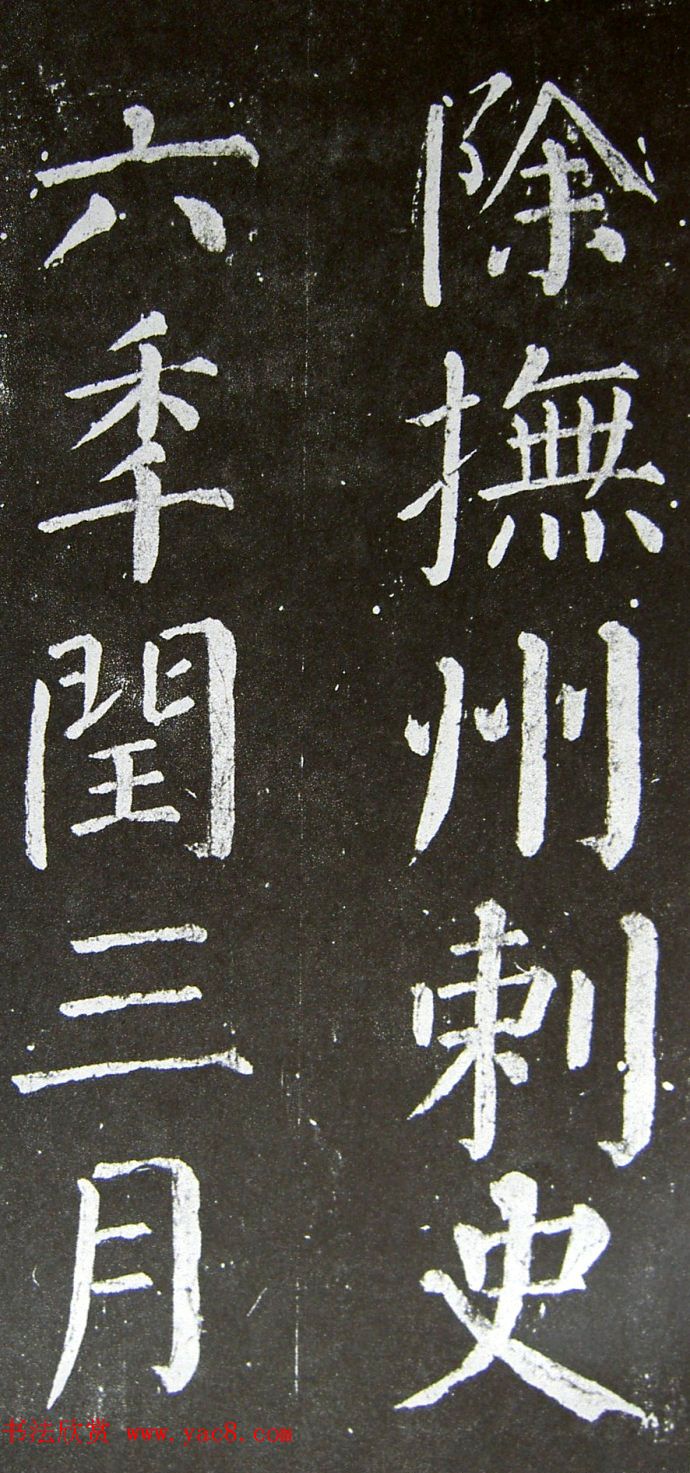 除撫州刺史
六秊閏三月
书法欣赏 www.yac8.com